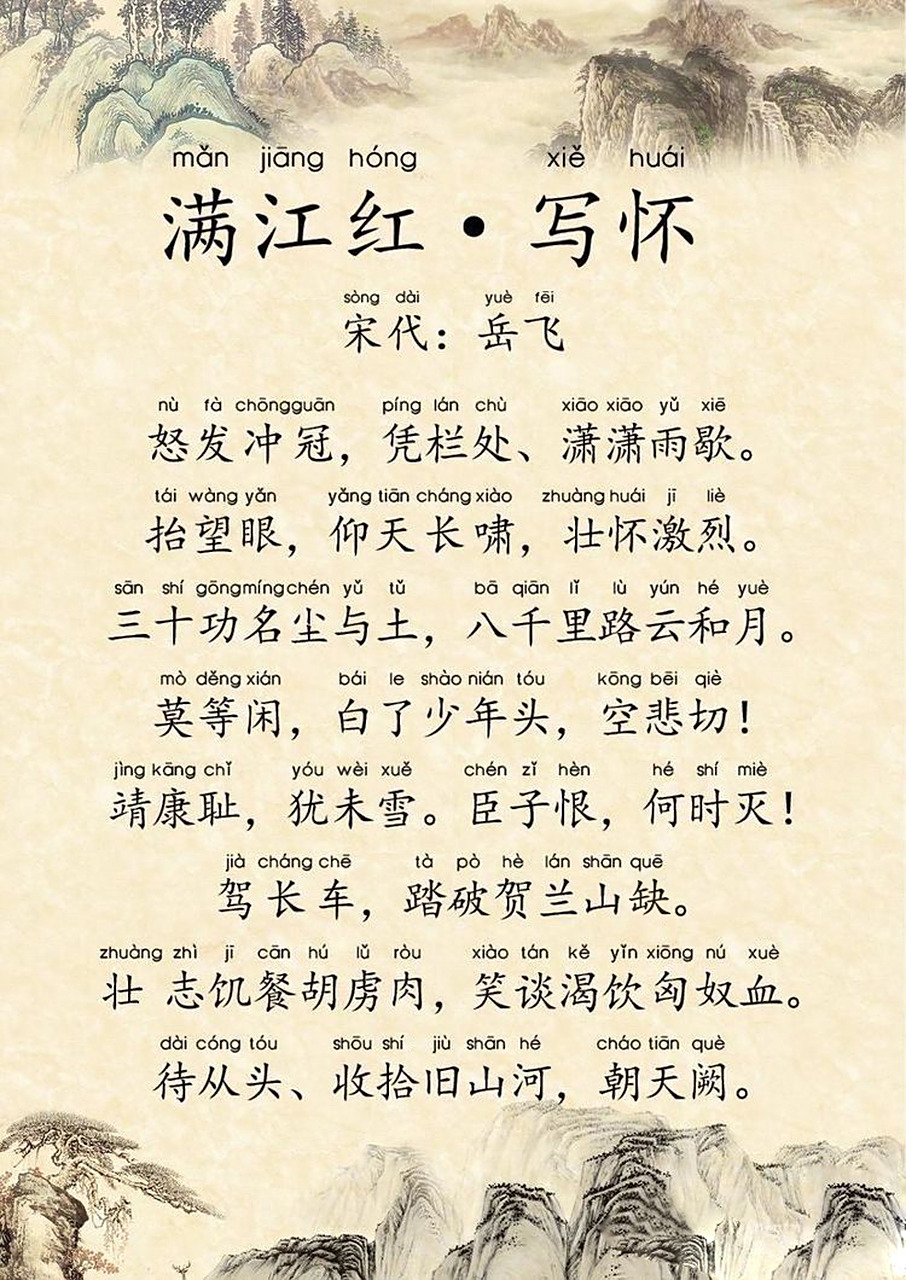 mǎn jiāng hóng xiě huái
满江红·写怀
sòng dài yuè fēi
宋代：岳飞
nù fà chōngguān píng lán chù xiāo xiāo yǔ xiē
怒发冲冠，凭栏处、潇潇雨歇。
tái wàng yǎn yǎng tiān cháng xiào zhuàng huái jī liè
抬望眼，仰天长啸，壮怀激烈。
sān shí gōngmíngchén yǔ tǔ bā qiān lǐ lù yún hé yuè
三十功名尘与土，八千里路云和月。
mò děng xián bái le shào nián tóu kōng bēi qiè
莫等闲，白了少年头，空悲切！
jìng kāng chǐ yóu wèi xuě chén zǐ hèn hé shí miè
靖康耻，犹未雪。臣子恨，何时灭！
jià cháng chē tà pò hè lán shān quē
驾长车，踏破贺兰山缺。
zhuàng zhì jī cān hú lǔ ròu xiào tán kě yǐn xiōng nú xuè
壮志饥餐胡虏肉，笑谈渴饮匈奴血。
dài cóng tóu shōu shí jiù shān hé cháo tiān què
待从头、收拾旧山河，朝天阙。